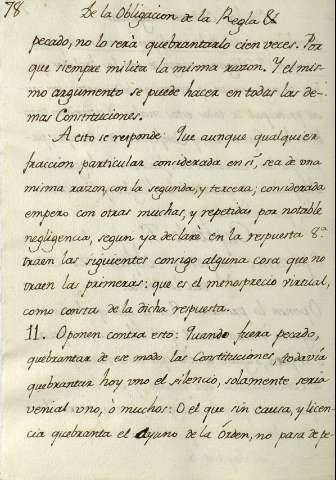 78
De la Obligacion de la Regla &
pecado, no lo serà quebrantarlo cien veces. Por
que siempre milita la misma razon. Y el mis-
mo argumento se puede hacer en todas las de-
mas Constituciones.
A esto se responde: Que aunque qualquier
fraccion particular considerada en sí, sea de una
misma razon, con la segunda, y tercera; considerada
empero con otras muchas, y repetidas por notable
negligencia, segun ya declarè en la respuesta 8.ª
traen las siguientes consigo alguna cosa que no
traen las primeras: que es el menosprecio virtual,
como consta de la dicha respuesta.
11. Oponen contra esto: Quando fuera pecado,
quebrantar de ese modo las Constituciones, todavia
quebrantar hoy uno el silencio, solamente seria
venial uno, ò muchos: O el que sin causa, y licen-
cia quebranta el Ayuno de la Órden, no pasa de pe-